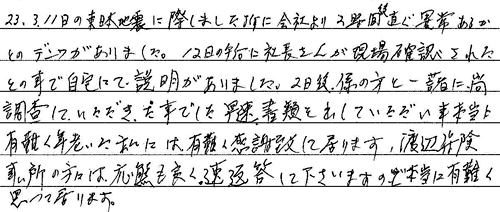 23.3.11日の東日本地震に際しました折に会社より2時間後直ぐ異常あるか
とのデンワがありました。12日の午后に社長さんが現場確認された
との事で自宅にて説明がありました。2日後、係の方と一諸に尚
調査していただき、大事でした早速書類を出していただい事本当に
有難く年老いた私には有難く感謝致して居ります、渡辺保険
事ム所の方には、応態も良く、速返答して下さいますので本当に有難く
思って居ります。